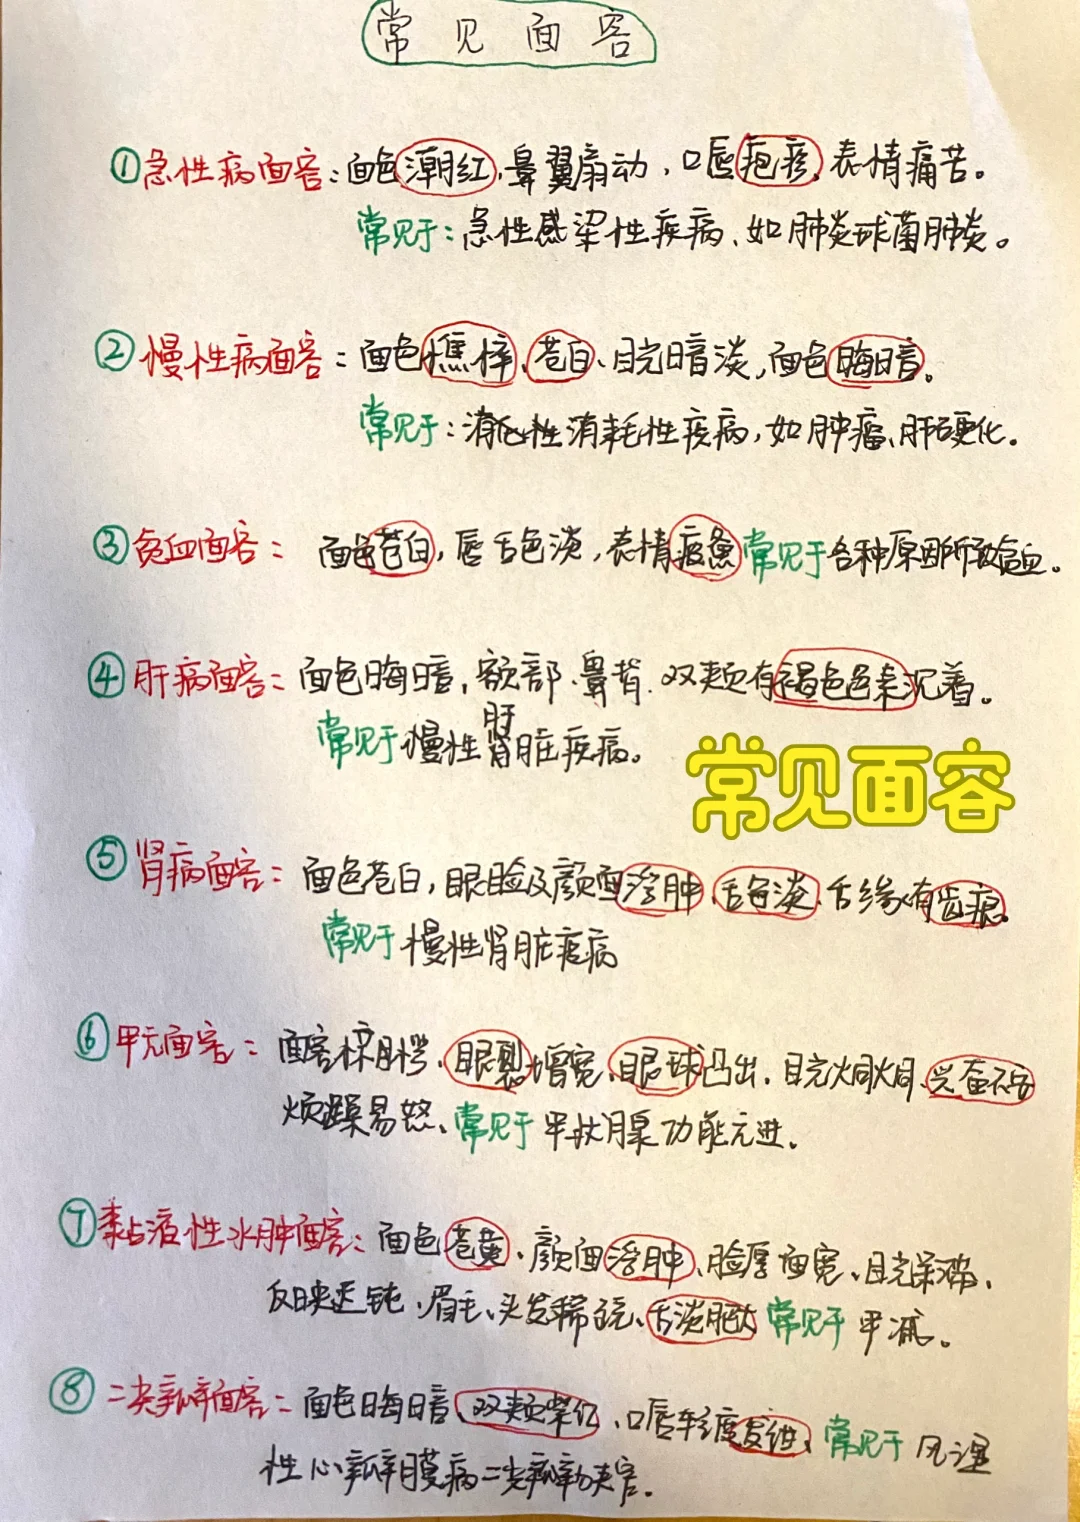 常见面容
①急性病面容：面色潮红，鼻翼扇动，口唇疱疹、表情痛苦。
常见于：急性感染性疾病、如肺炎球菌肺炎。
②慢性病面容：面色憔悴、苍白、目光暗淡，面色晦暗。
常见于：消耗性疾病，如肿瘤、肝硬化。
③贫血面容：面色苍白，唇舌色淡，表情疲惫常见于各种原因所致贫血。
④肝病面容：面色晦暗，额部、鼻背、双颊有褐色色素沉着。
常见于慢性肝脏疾病。
常见面容
⑤肾病面容：面色苍白，眼睑及颜面浮肿、舌色淡、舌缘有齿痕。
常见于慢性肾脏疾病
⑥甲亢面容：面容惊愕、眼裂增宽、眼球凸出、目光炯炯、兴奋不安
烦躁易怒、常见于甲状腺功能亢进。
⑦黏液性水肿面容：面色苍黄、颜面浮肿、脸厚面宽、目光呆滞、
反映迟钝、眉毛、头发稀疏、舌淡肥大常见于甲减。
⑧二尖瓣面容：面色晦暗、双颊紫红、口唇轻度发绀、常见于风湿
性心瓣膜病二尖瓣狭窄。